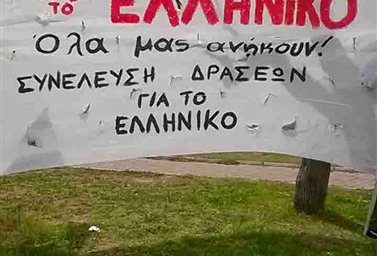 ΤΟ ΕΛΛΗΝΙΚΟ
Όλα μας ανήκουν!
ΣΥΝΕΛΕΥΣΗ ΔΡΑΣΕΩΝ
ΓΙΑ ΤΟ
ΕΛΛΗΝΙΚΟ